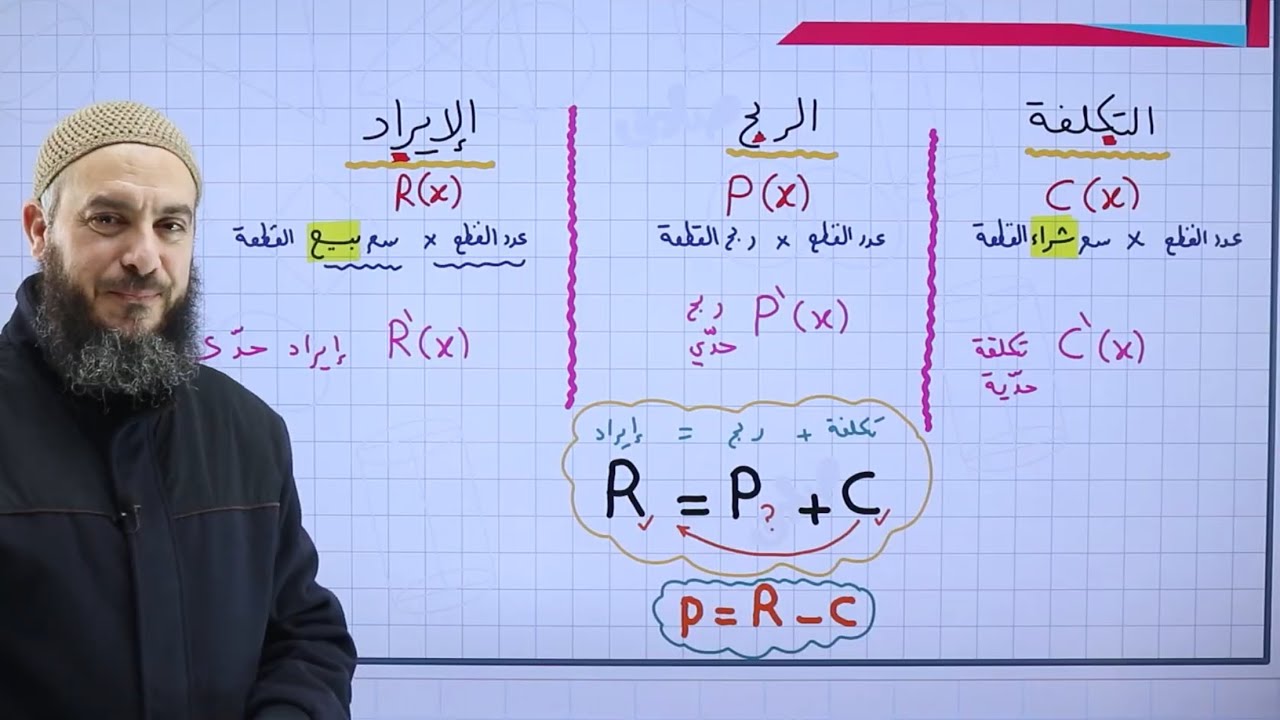 التكلفة
C(x)
عدد القطع × سعر شراء القطعة
C`(x) تكلفة
حدّية
الربح
P(x)
عدد القطع × ربح القطعة
P`(x) ربح
حدّي
الإيراد
R(x)
عدد القطع × سعر بيع القطعة
R`(x) إيراد حدّي
تكلفة + ربح = إيراد
R = P + C
?
P = R - C